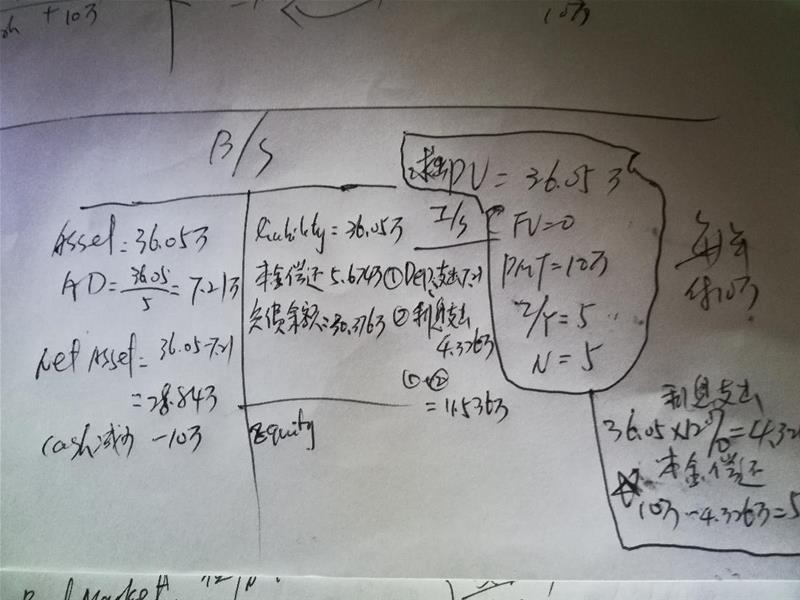 + 10万
10万
B/S
Asset = 36.05万
AD = 36.05/5 = 7.21万
Net Asset = 36.05-7.21
= 28.84万
Cash减少 -10万
Liability = 36.05万
本金偿还 5.674万
负债余额 = 30.376万
Equity
I/S
① Dep.支出 7.21
② 利息支出
4.326万
①+②
= 11.536万
求出PV = 36.05万
FV=0
PMT=10万
I/Y = 5
N = 5
每年
付10万
利息支出
36.05×12%=4.32
本金偿还
10万-4.326万=5
Market